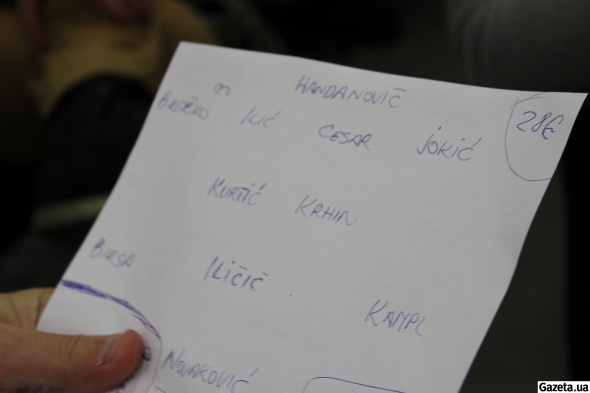 HANDANOVIČ
28€
BREČKO ILIĆ CESAR JOKIĆ
KURTIĆ KRHIN
BIRSA ILIČIČ KAMPL
NOVAKOVIĆ
Gazeta.ua